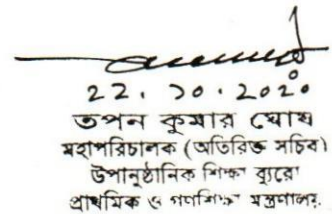 ২২.১০.২০২০
তপন কুমার ঘোষ
মহাপরিচালক (অতিরিক্ত সচিব)
উপানুষ্ঠানিক শিক্ষা ব্যুরো
প্রাথমিক ও গণশিক্ষা মন্ত্রণালয়.